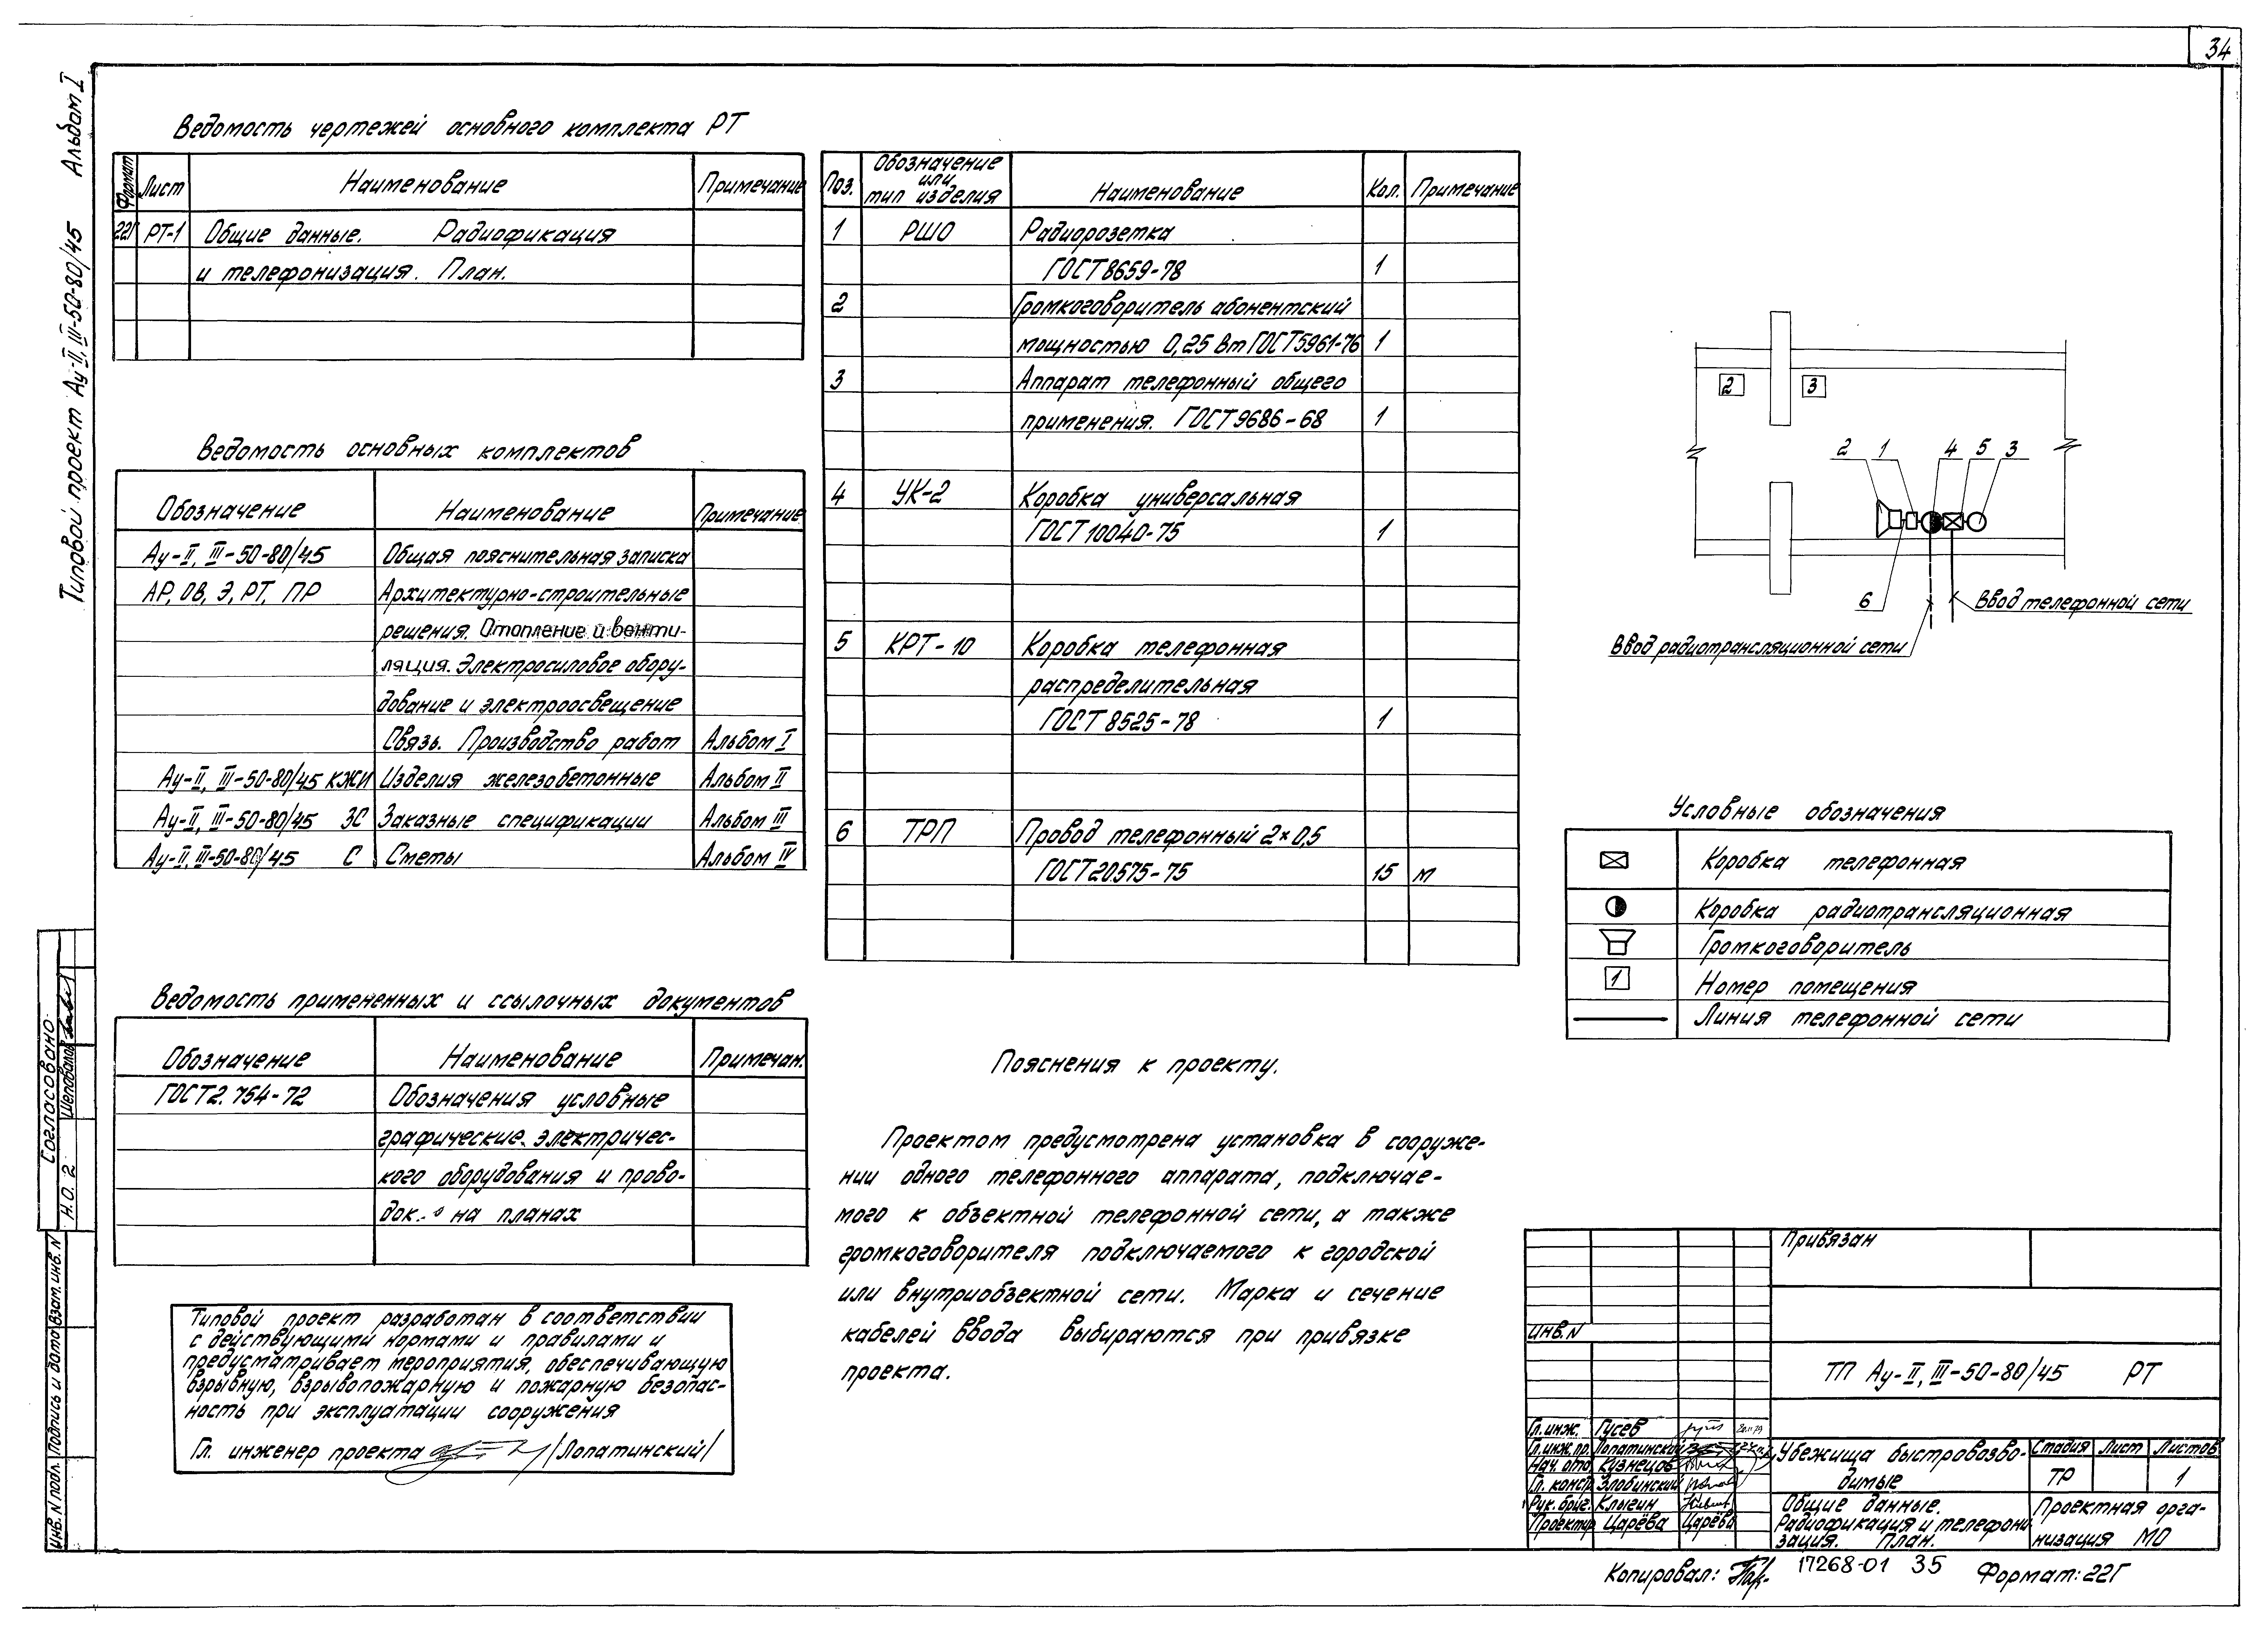 34
Альбом I
Типовой проект Ау-II, III-50-80/45
Ведомость чертежей основного комплекта РТ
Формат Лист Наименование Примечание
22Г РТ-1 Общие данные. Радиофикация
и телефонизация. План.
Ведомость основных комплектов
Обозначение Наименование Примечание
Ау-II, III-50-80/45 Общая пояснительная записка
АР, ОВ, Э, РТ, ПР Архитектурно-строительные
решения. Отопление и венти-
ляция. Электросиловое обору-
дование и электроосвещение
Связь. Производство работ Альбом I
Ау-II, III-50-80/45 КЖИ Изделия железобетонные Альбом II
Ау-II, III-50-80/45 ЗС Заказные спецификации Альбом III
Ау-II, III-50-80/45 С Сметы Альбом IV
Ведомость примененных и ссылочных документов
Обозначение Наименование Примечан.
ГОСТ 2.754-72 Обозначения условные
графические электричес-
кого оборудования и прово-
док на планах
Типовой проект разработан в соответствии
с действующими нормами и правилами и
предусматривает мероприятия, обеспечивающую
взрывную, взрывопожарную и пожарную безопас-
ность при эксплуатации сооружения
Гл. инженер проекта /Лопатинский/
Поз. Обозначение или тип изделия Наименование Кол. Примечание
1 РШО Радиорозетка
ГОСТ 8659-78 1
2 Громкоговоритель абонентский
мощностью 0,25 Вт ГОСТ 5961-76 1
3 Аппарат телефонный общего
применения. ГОСТ 9686-68 1
4 УК-2 Коробка универсальная
ГОСТ 10040-75 1
5 КРТ-10 Коробка телефонная
распределительная
ГОСТ 8525-78 1
6 ТРП Провод телефонный 2×0,5
ГОСТ 20575-75 15 м
Пояснения к проекту.
Проектом предусмотрена установка в сооруже-
нии одного телефонного аппарата, подключае-
мого к объектной телефонной сети, а также
громкоговорителя подключаемого к городской
или внутриобъектной сети. Марка и сечение
кабелей ввода выбираются при привязке
проекта.
2 3
2 1 4 5 3
6
Ввод телефонной сети
Ввод радиотрансляционной сети
Условные обозначения
Коробка телефонная
Коробка радиотрансляционная
Громкоговоритель
1 Номер помещения
Линия телефонной сети
Согласовано
Н.О. 2 Шаповалов
Инв. N подл. Подпись и дата Взам. инв. N
Привязан
Инв. N
ТП Ау-II, III-50-80/45 РТ
Гл. инж. Гусев
Гл. инж. пр. Лопатинский
Нач. отд. Кузнецов
Гл. констр. Злобинский
Рук. бриг. Клыгин
Проектир. Царёва Царёва
Убежища быстровозво-
димые
Стадия Лист Листов
ТР 1
Общие данные.
Радиофикация и телефони
зация. План.
Проектная орга-
низация МО
Копировал: 17268-01 35 Формат: 22Г